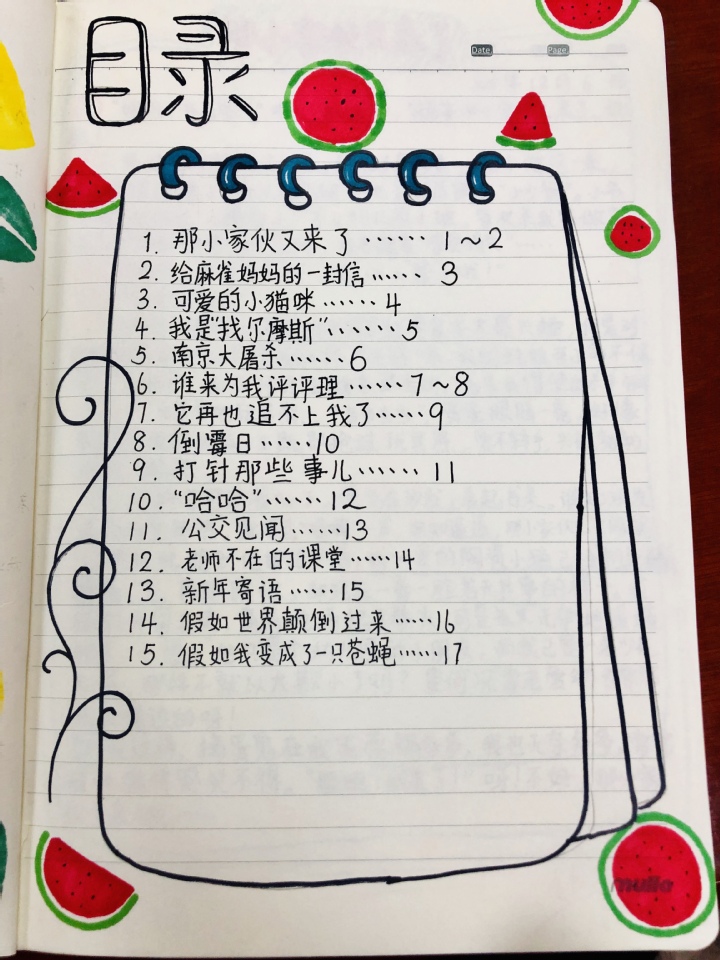 目录
Date
Page
1. 那小家伙又来了 …… 1～2
2. 给麻雀妈妈的一封信 …… 3
3. 可爱的小猫咪 …… 4
4. 我是“找尔摩斯” …… 5
5. 南京大屠杀 …… 6
6. 谁来为我评评理 …… 7～8
7. 它再也追不上我了 …… 9
8. 倒霉日 …… 10
9. 打针那些事儿 …… 11
10. “哈哈” …… 12
11. 公交见闻 …… 13
12. 老师不在的课堂 …… 14
13. 新年寄语 …… 15
14. 假如世界颠倒过来 …… 16
15. 假如我变成了一只苍蝇 …… 17